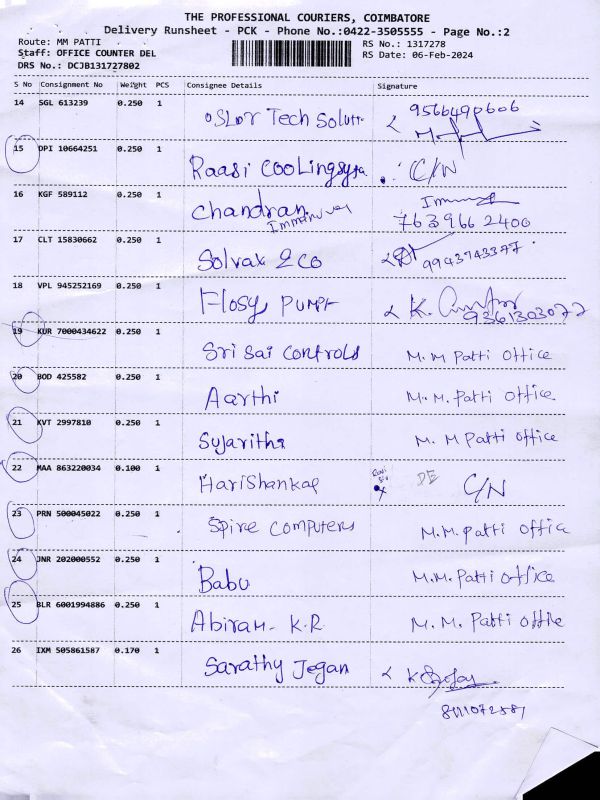 THE PROFESSIONAL COURIERS, COIMBATORE
Delivery Runsheet - PCK - Phone No.:0422-3505555 - Page No.:2
Route: MM PATTI RS No.: 1317278
Staff: OFFICE COUNTER DEL RS Date: 06-Feb-2024
DRS No.: DCJB131727802
S No Consignment No Weight PCS Consignee Details Signature
14 SGL 613239 0.250 1 OSLOR Tech Soluti 9566490606
15 DPI 10664251 0.250 1 Raasi Coolingsys C/N
16 KGF 589112 0.250 1 Chandran Immanuvel 7639662400
17 CLT 15830662 0.250 1 Solvax & Co 9943743377
18 VPL 945252169 0.250 1 Flosy Pump 9361303072
19 KUR 7000434622 0.250 1 Sri Sai Controls M.M Patti Office
20 BOD 425582 0.250 1 Aarthi M.M. Patti Office
21 KVT 2997810 0.250 1 Sujaritha M. M Patti Office
22 MAA 863220034 0.100 1 HariShankar DE C/N
23 PRN 500045022 0.250 1 Spire Computers M.M. Patti Office
24 JNR 202000552 0.250 1 Babu M.M. Patti Office
25 BLR 6001994886 0.250 1 Abiram. K.R M. M. Patti Office
26 IXM 505861587 0.170 1 Sarathy Jegan
8111072581